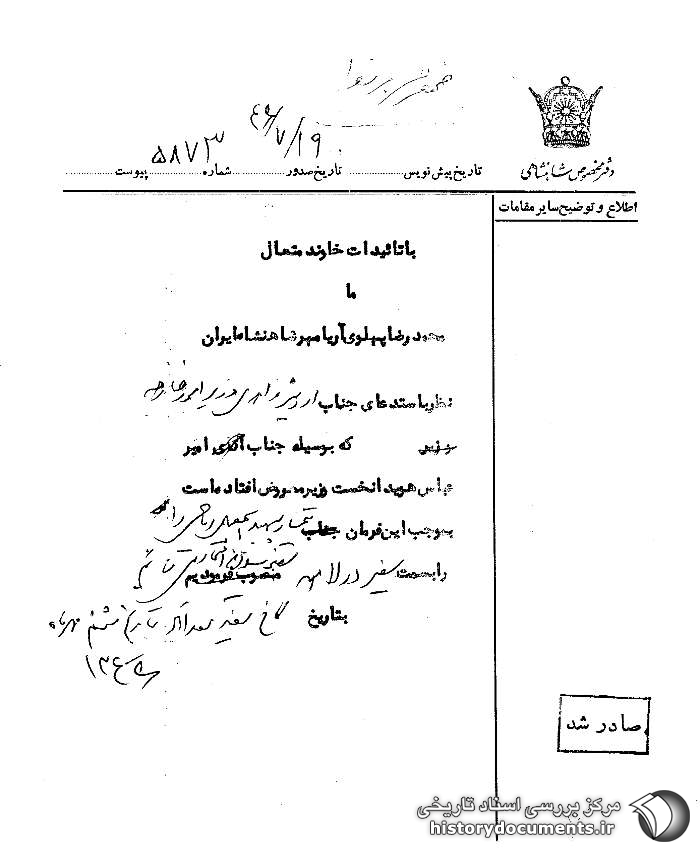 ۴۶/۷/۱۹
۵۸۷۳
دفتر مخصوص شاهنشاهی
تاریخ پیش نویس تاریخ صدور شماره پیوست
اطلاع و توضیح سایر مقامات
با تائیدات خاوند متعال
ما
محمد رضا پهلوی آریا مهر شاهنشاه ایران
نظر باستدعای جناب اردشیر زاهدی وزیر امور خارجه
وزیر که بوسیله جناب آقای امیر
عباس هویدا نخست وزیر معروض افتاده است
بموجب این فرمان جناب تیمسار سپهبد اسمعیل ریاحی را که
را بسمت سفیر در لاهه
منصوب فرمودیم
بتاریخ کاخ سفید سعدآباد بتاریخ ششم مهرماه
۱۳۴۶
صادر شد
مرکز بررسی اسناد تاریخی
historydocuments.ir